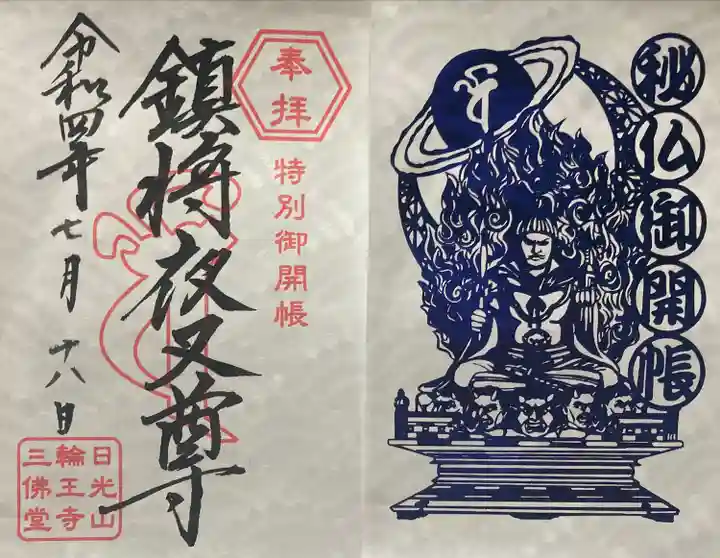 秘仏御開帳
奉拝
特別御開帳
鎮将夜叉尊
令和四年七月十八日
日光山
輪王寺
三佛堂